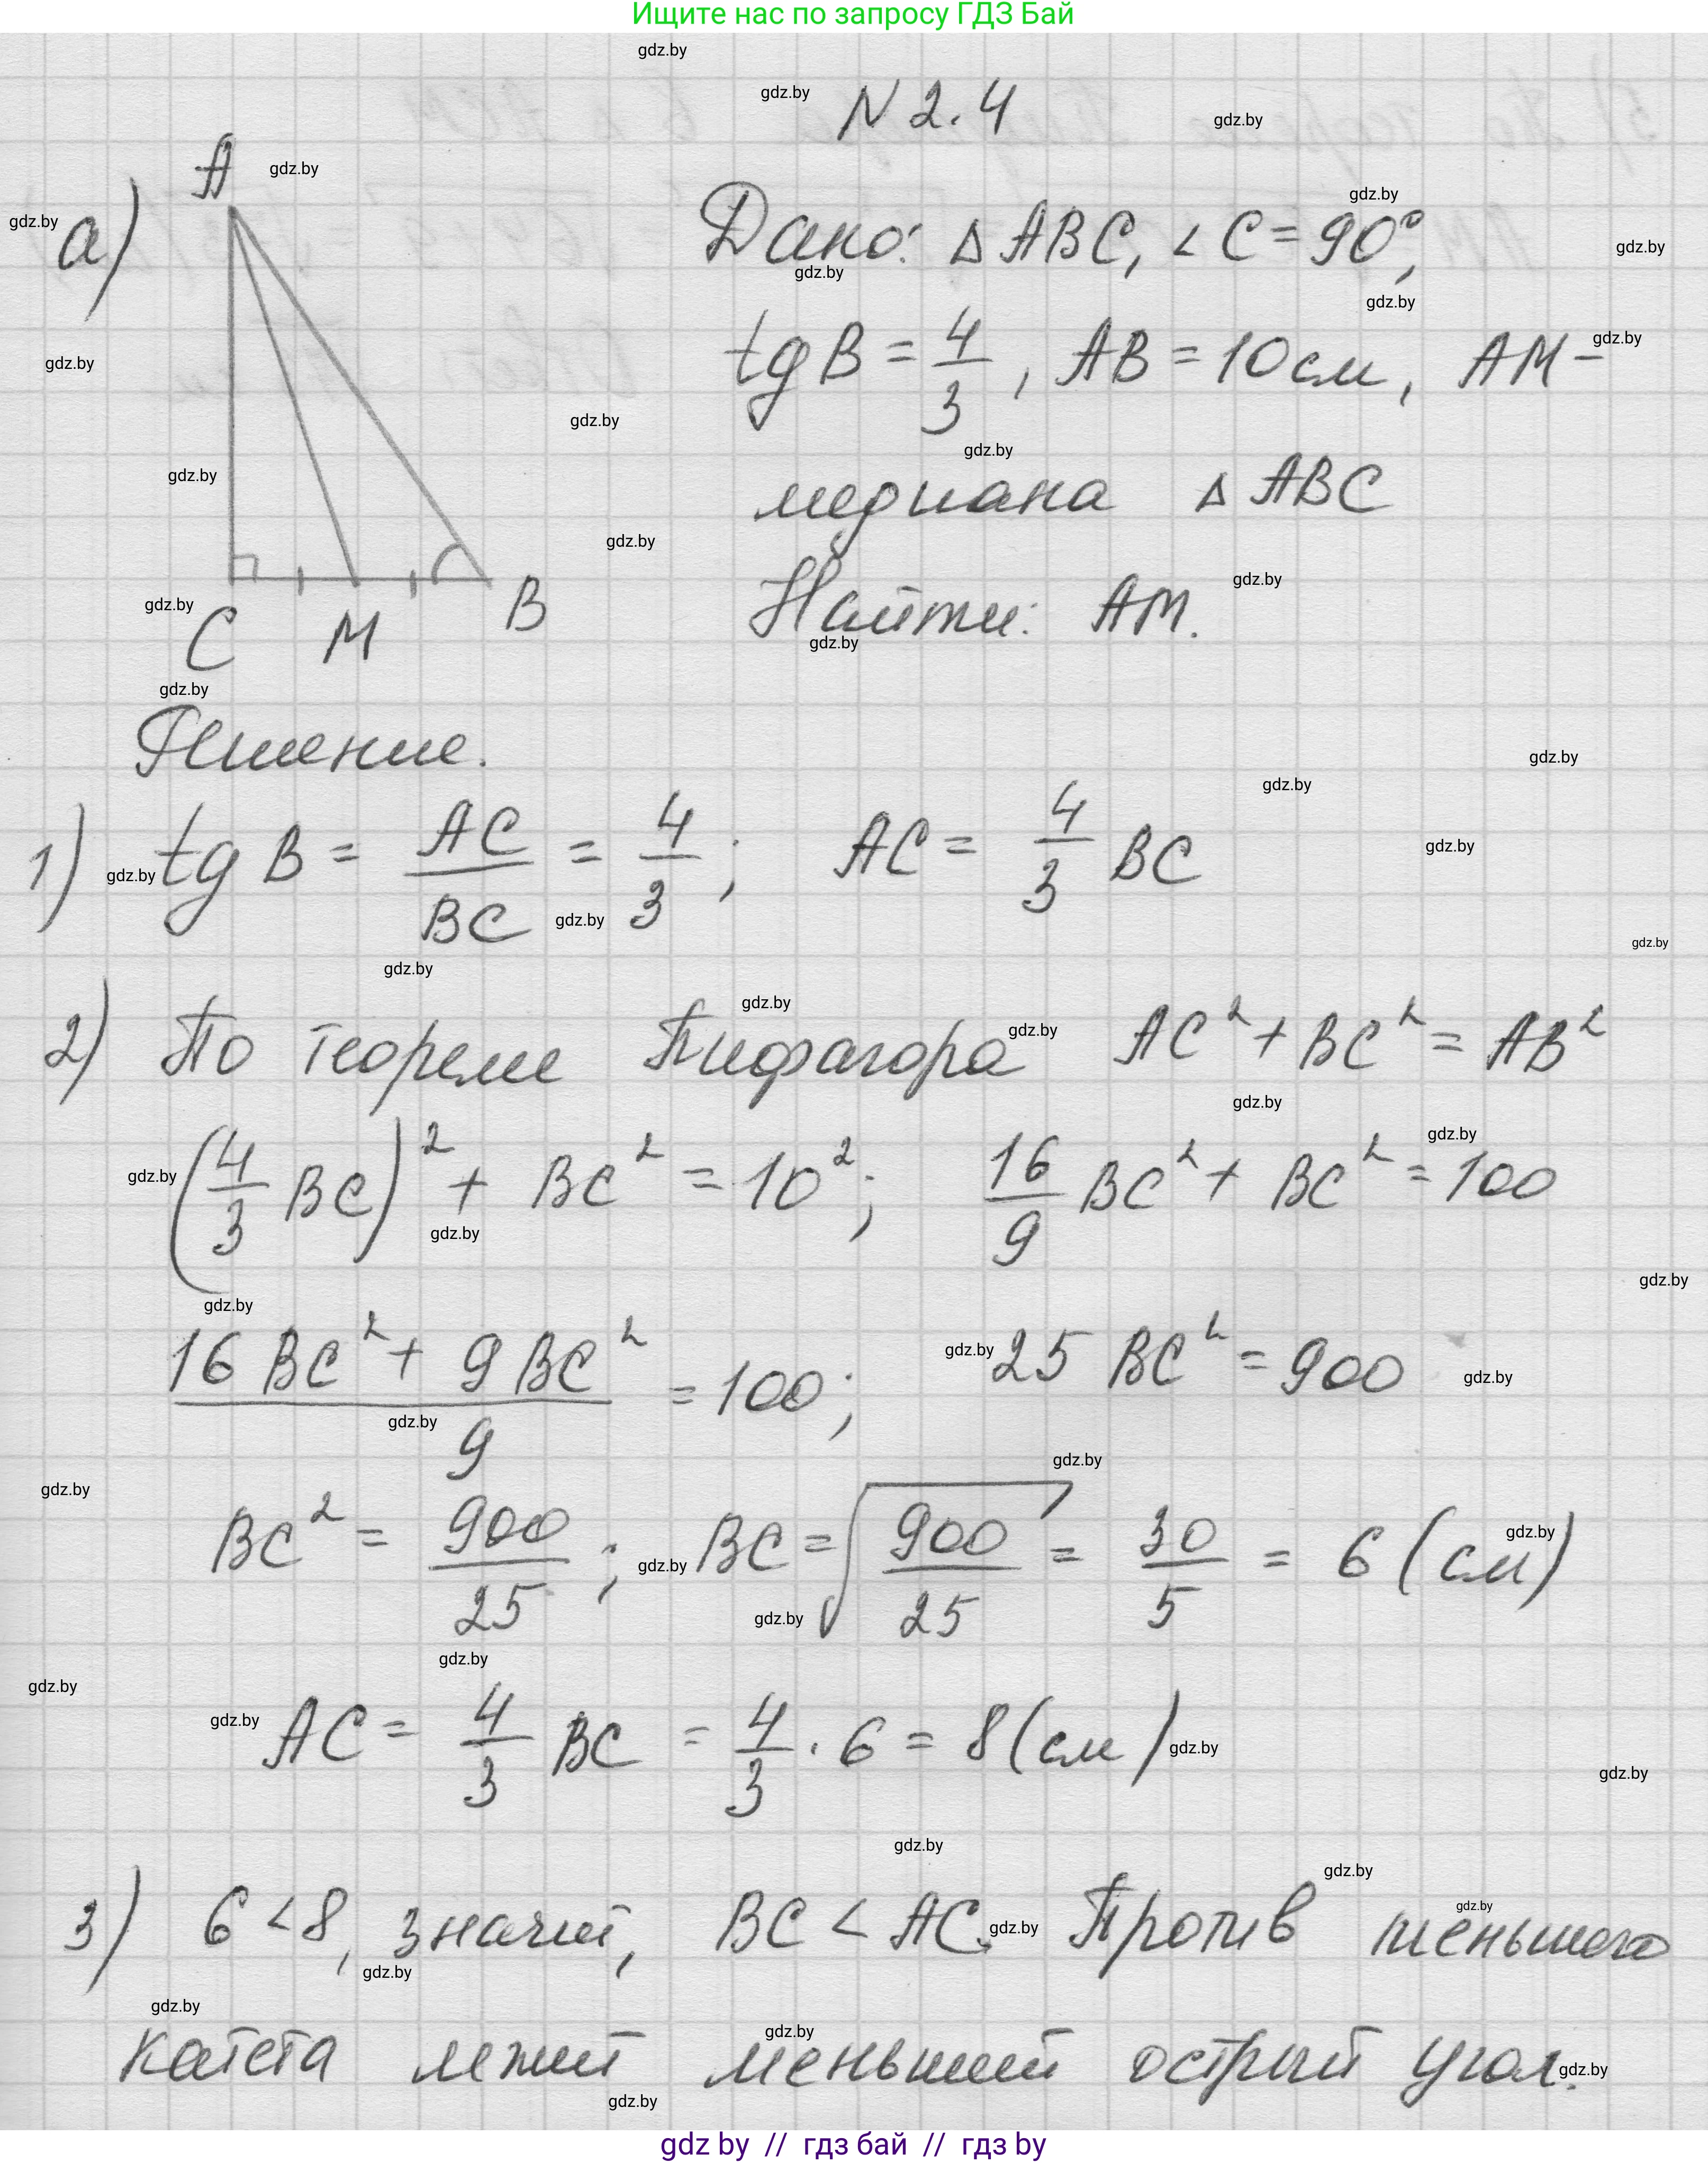 Ищите нас по запросу ГДЗ Бай
N 2.4
а)
A
C M B
Дано: △ABC, ∠C=90°,
tg B = 4/3, AB = 10 см, AM -
медиана △ABC
Найти: AM.
Решение.
1) tg B = AC/BC = 4/3; AC = 4/3 BC
2) По теореме Пифагора AC² + BC² = AB²
(4/3 BC)² + BC² = 10²; 16/9 BC² + BC² = 100
(16 BC² + 9 BC²)/9 = 100; 25 BC² = 900
BC² = 900/25; BC = √(900/25) = 30/5 = 6 (см)
AC = 4/3 BC = 4/3 · 6 = 8 (см)
3) 6 < 8, значит, BC < AC. Против меньшего
катета лежит меньший острый угол.
gdz by // гдз бай // гдз by